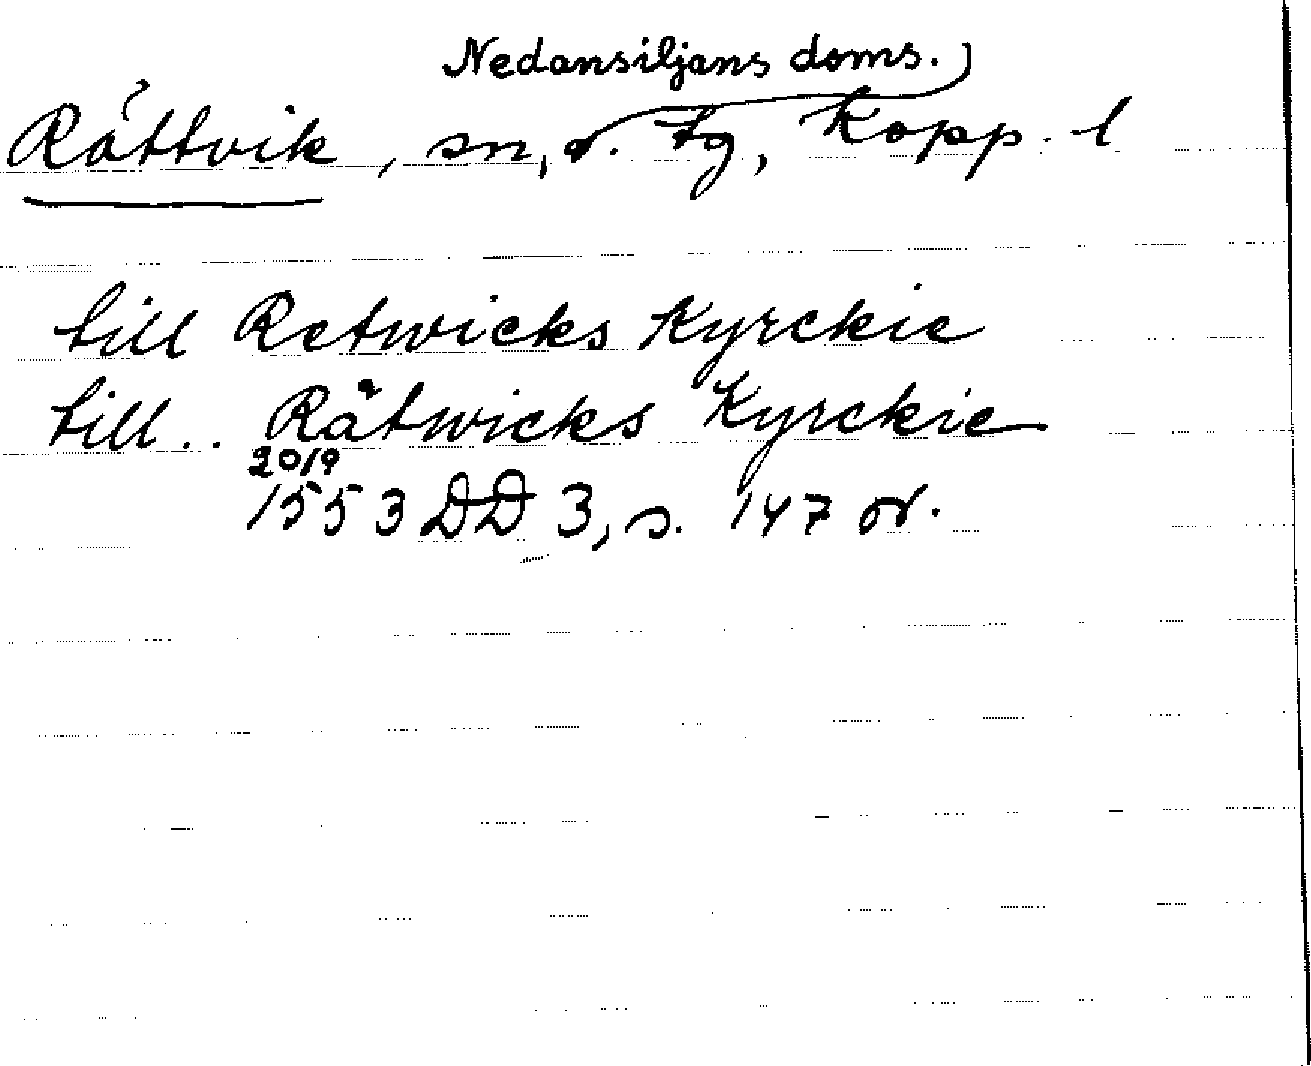 Nedansiljans doms.
Rättvik, sn, o. tg, Kopp. l
till Retwicks Kyrckie
till.. Rätwicks Kyrckie
20/9
1553 DD 3, s. 147 or.